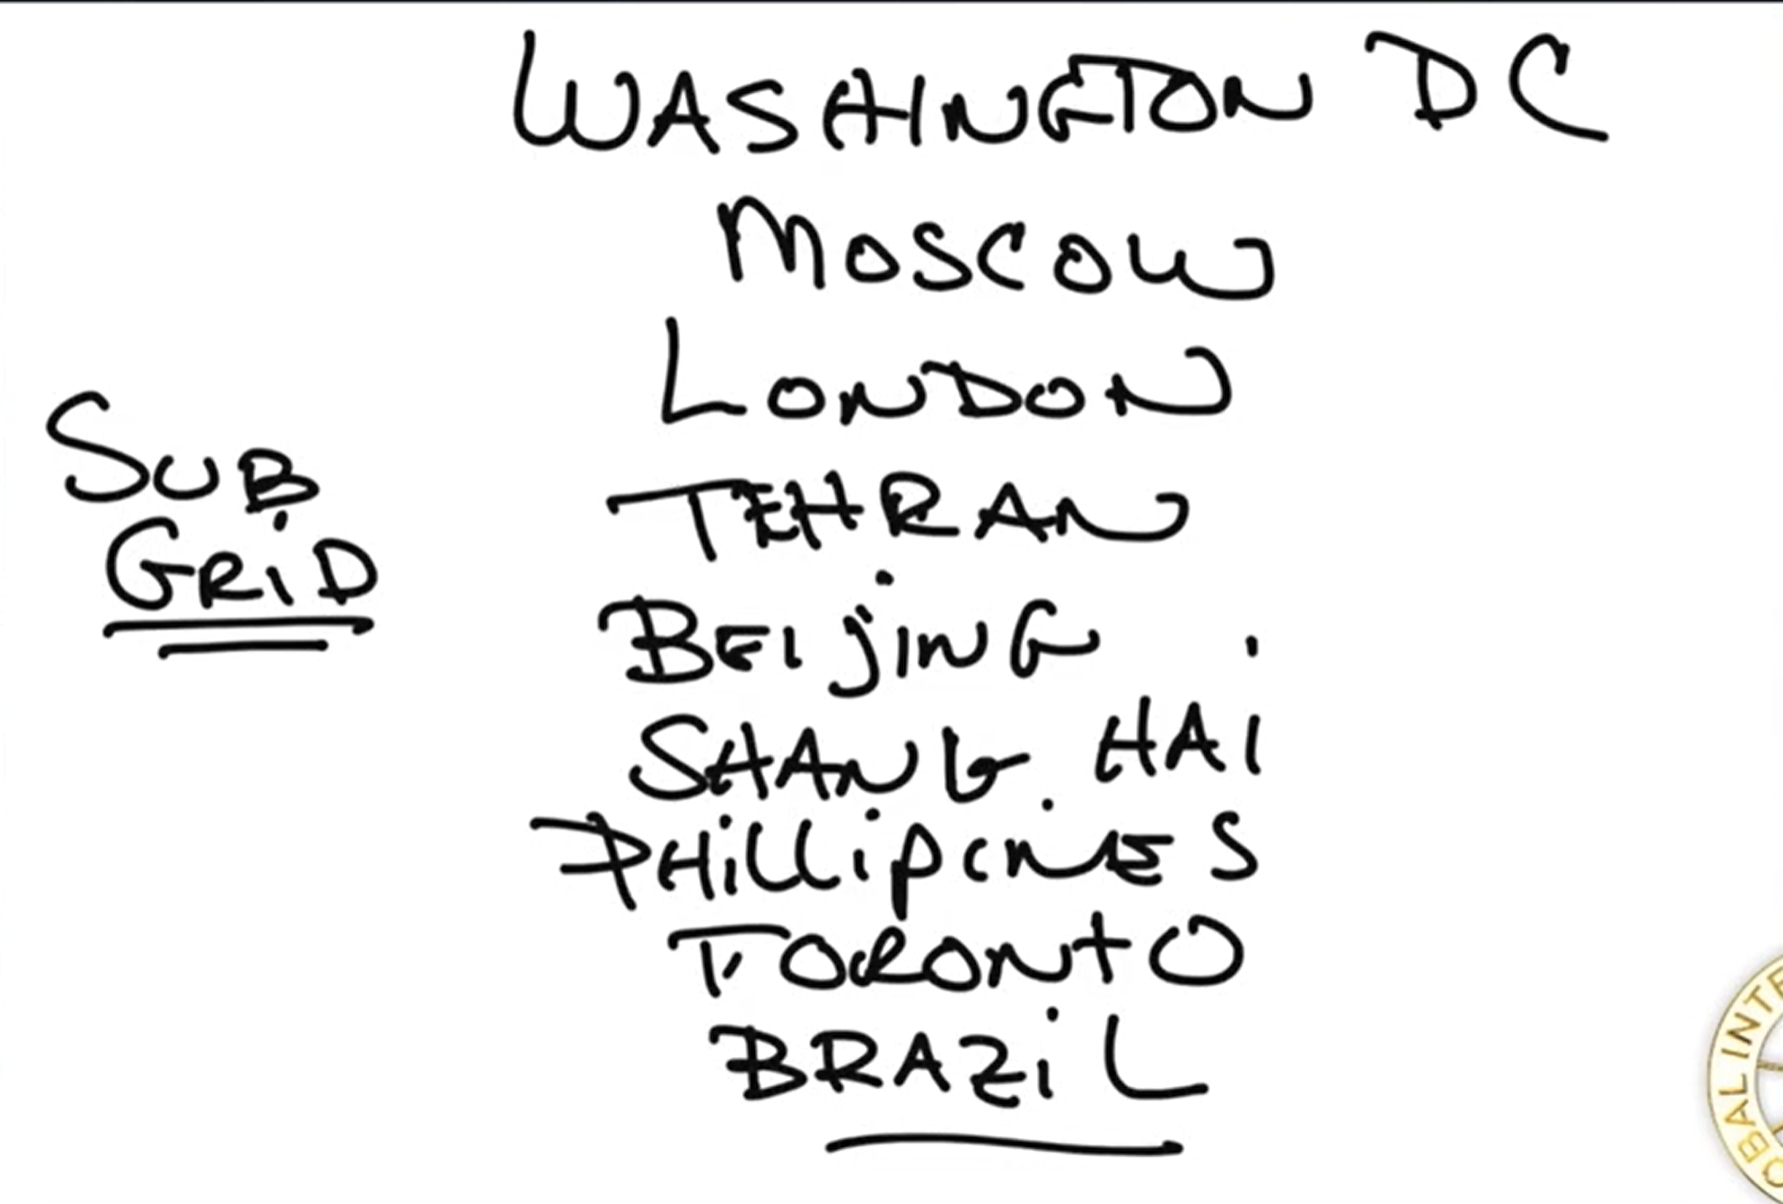 WASHINGTON DC
MOSCOW
LONDON
SUB
GRiD
TEHRAN
BEIjING
SHANG HAI
PHilliPiNES
TORONTO
BRAZiL
OBAL INTE